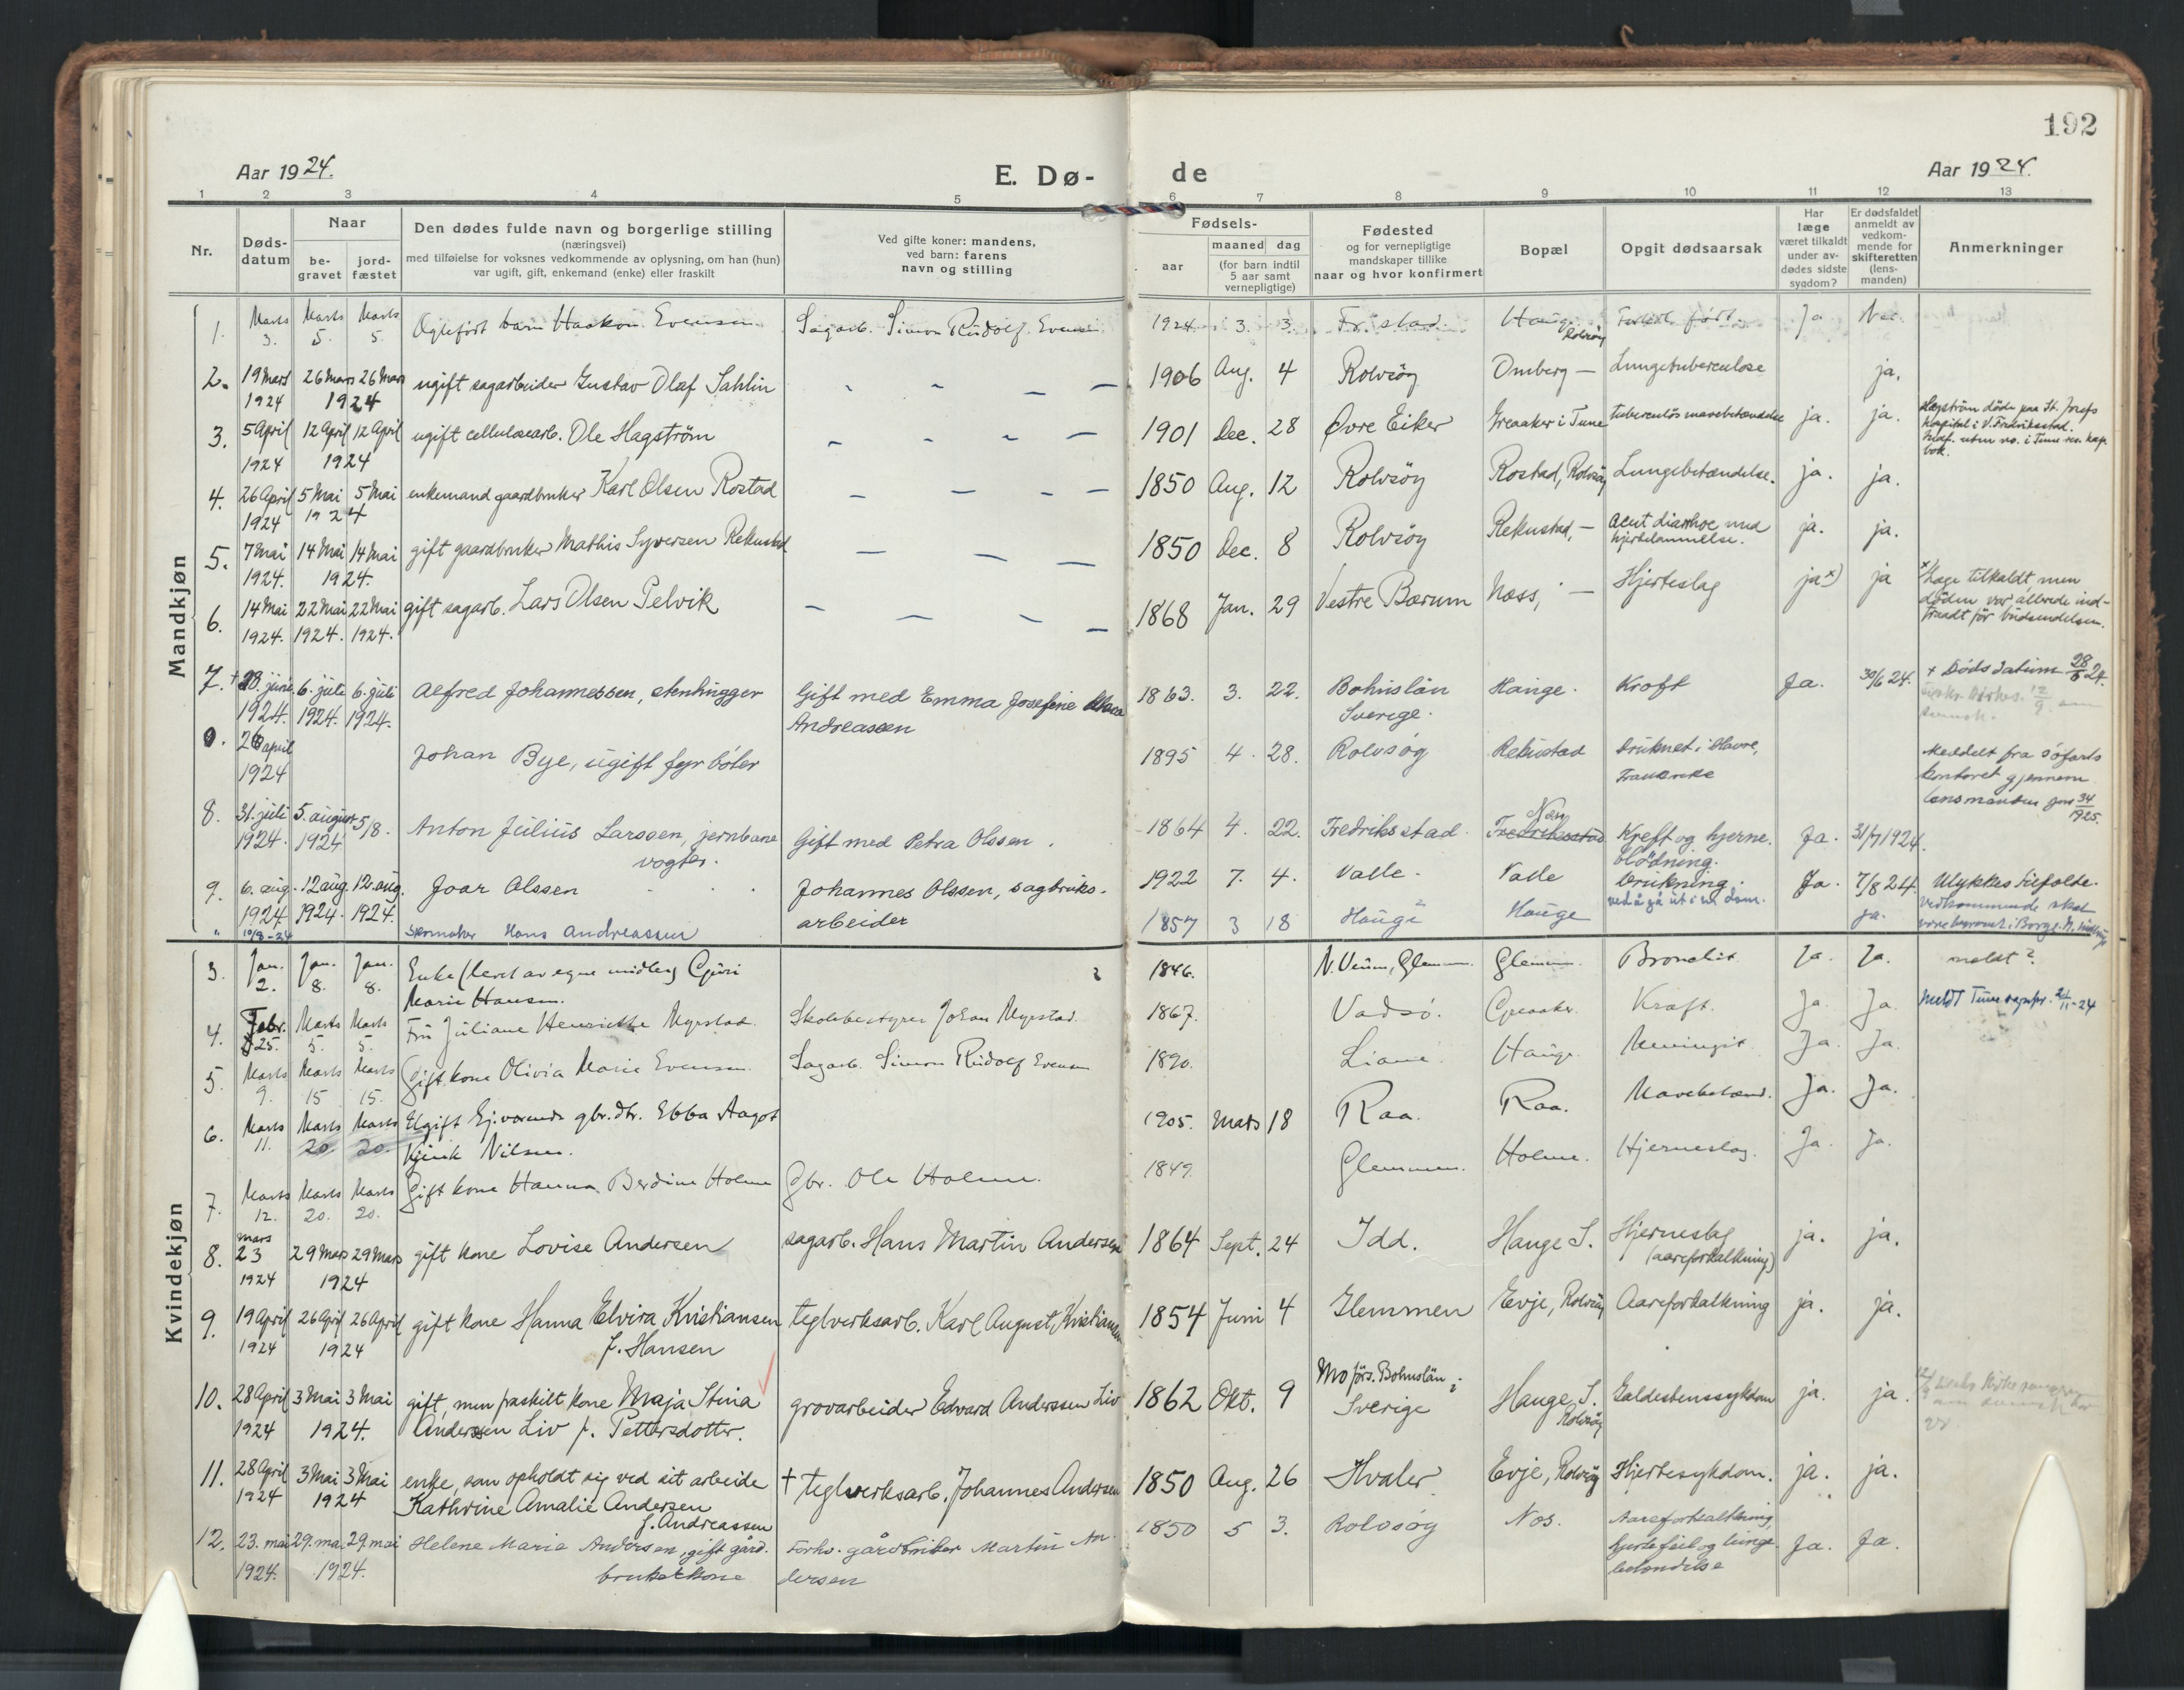 192
Aar 1924.
E. Dø-
de
Aar 1924.
1 2 3 4 5 6 7 8 9 10 11 12 13
Nr.
Døds-
datum
Naar
be-
gravet
jord-
fæstet
Den dødes fulde navn og borgerlige stilling
(næringsvei)
med tilføielse for voksnes vedkommende av oplysning, om han (hun)
var ugift, gift, enkemand (enke) eller fraskilt
Ved gifte koner: mandens,
ved barn: farens
navn og stilling
Fødsels-
aar
maaned dag
(for barn indtil
5 aar samt
vernepligtige)
Fødested
og for vernepligtige
mandskaper tillike
naar og hvor konfirmert
Bopæl
Opgit dødsaarsak
Har
læge
været tilkaldt
under av-
dødes sidste
sygdom?
Er dødsfaldet
anmeldt av
vedkom-
mende for
skifteretten
(lens-
manden)
Anmerkninger
Mandkjøn
1. Marts Marts Marts barn Haakon Evensen Sagarb. Simon Rudolf Evensen 1924 3. 3. Fr.stad Hauge Ja Nei
3. 5. 5. Rolvsøy
2. 19 Mars 26 Mars 26 Mars ugift sagarbeider Gustav Olaf Sahlin - - - - 1906 Aug. 4 Rolvsøy Omberg — Lungetuberculose ja.
1924 1924
3. 5 April 12 April 12 April ugift cellulosearb. Ole Hagström - - - - 1901 Dec. 28 Øvre Eiker Greaaker i Tune tuberculøs mavebetændelse ja. ja. Hagström döde paa St. Josefs
1924 1924 hospital i V. Fredriksstad.
Indf. uten no. i Tune res. kap.
bok.
4. 26 April 5 Mai 5 Mai enkemand gaardbruker Karl Olsen Rostad - - - - 1850 Aug. 12 Rolvsöy Rostad, Rolvsöy Lungebetændelse. ja. ja.
1924 1924
5. 7 Mai 14 Mai 14 Mai gift gaardbruker Mathis Syversen Rekustad - - - 1850 Dec. 8 Rolvsöy Rekustad, — acut diarrhoe med ja. ja.
1924. 1924. hjertelammelse.
6. 14 Mai 22 Mai 22 Mai gift sagarb. Lars Olsen Gelvik - - - - 1868 Jan. 29 Vestre Bærum Næss, — Hjerteslag ja x) ja x Læge tilkaldt, men
1924. 1924. 1924. döden var allerede ind-
traadt för budsendelsen.
7. + 28. juni 6. juli 6. juli Alfred Johannessen, stenhugger Gift med Emma Josefine 1863. 3. 22. Bohuslän Hauge. Kreft Ja. 30/6 24. + Dødsdatum 28/6 24.
1924. 1924. 1924. Andreassen Sverige.
0. 26 april Johan Bye, ugift fyrbøter 1895 4. 28. Rolvsøy Rekustad Druknet i Havre, Meddelt fra søfarts
1924 Frankrike kontoret gjennem
lensmanden jnr 34/1925.
8. 31. juli 5. august 5/8. Anton Julius Larssen, jernbane Gift med Petra Olssen. 1864 4. 22. Fredriksstad. Fredriksstad Kreft og hjerne- Ja. 31/7 1924.
1924. 1924 vogter. Næs blødning.
9. 6. aug. 12 aug. 12. aug. Joar Olssen Johannes Olssen, sagbruks- 1922 7. 4. Valle. Valle Drukning. Ja. 7/8 24. Ulykkestilfelde.
1924 1924. 1924. arbeider ved å gå ut i en dam.
" 10/8-24 Hans Andreassen 1857 3 18 Hauge ? Hauge ja. vedkommende skal
være
Kvindekjøn
3. Jan. Jan. Jan. Enke (levet av egne midler) Guri ? 1846. N. Veum, Glemm. Glemm. Bronchit Ja. Ja. meldt?
2. 8. 8. Marie Hansen.
4. Febr. Marts Marts Fru Juliane Henriette Myrstad Skolebestyrer Johan Myrstad. 1867. Vadsø. Greaaker. Kræft. Ja. Ja. Meldt Tune sognepr. 21/11-24
25. 5. 5.
5. Marts Marts Marts Gift kone Olivia Marie Evensen Sagarb. Simon Rudolf Evensen 1890. Hauge. Meningit. Ja. Ja.
9. 15 15.
6. Marts Marts Marts Ugift hj.værende gbr.dtr. Ebba Aagot 1905. Mars 18 Raa. Raa. Mavebetænd. Ja. Ja.
11. 20. 20. Nilsen.
7. Marts Marts Marts Gift kone Hanna Berdine Holme Gbr. Ole Holme. 1849. Glemmen. Holme. Hjerneslag Ja. Ja.
12. 20. 20.
8. mars 23 29 Mars 29 Mars gift kone Lovise Andersen sagarb. Hans Martin Andersen 1864 Sept. 24 Idd. Hauge S. Hjerneslag ja. ja.
1924 1924 (aareforkalkning)
9. 19 April 26 April 26 April gift kone Hanna Elvira Kristiansen teglverksarb. Karl August Kristiansen 1854 Juni 4 Glemmen Evje, Rolvsöy Aareforkalkning ja. ja.
1924 1924 f. Hansen
10. 28 April 3 Mai 3 Mai gift, men fraskilt kone Maja Stina grovarbeider Edvard Anderssen Liv 1862 Okt. 9 Mo förs. Bohuslän, Hauge S. Galdestenssykdom ja. ja.
1924 1924. Anderssen Liv f. Pettersdotter. Sverige Rolvsöy
11. 28 April 3 Mai 3 Mai enke, som opholdt sig ved sit arbeide + teglverksarb. Johannes Andersen 1850 Aug. 26 Hvaler Evje, Rolvsöy Hjertesykdom. ja. ja.
1924 1924 Kathrine Amalie Andersen
f. Andreassen
12. 23. mai 29. mai 29. mai Helene Marie Andersen, gift gård- Forhv. gårdbruker Martin An- 1850 5 3. Rolvsøy Nes. Aareforkalkning, Ja. Ja.
1924. 1924. brukerkone dersen hjertefeil og lunge-
betendelse